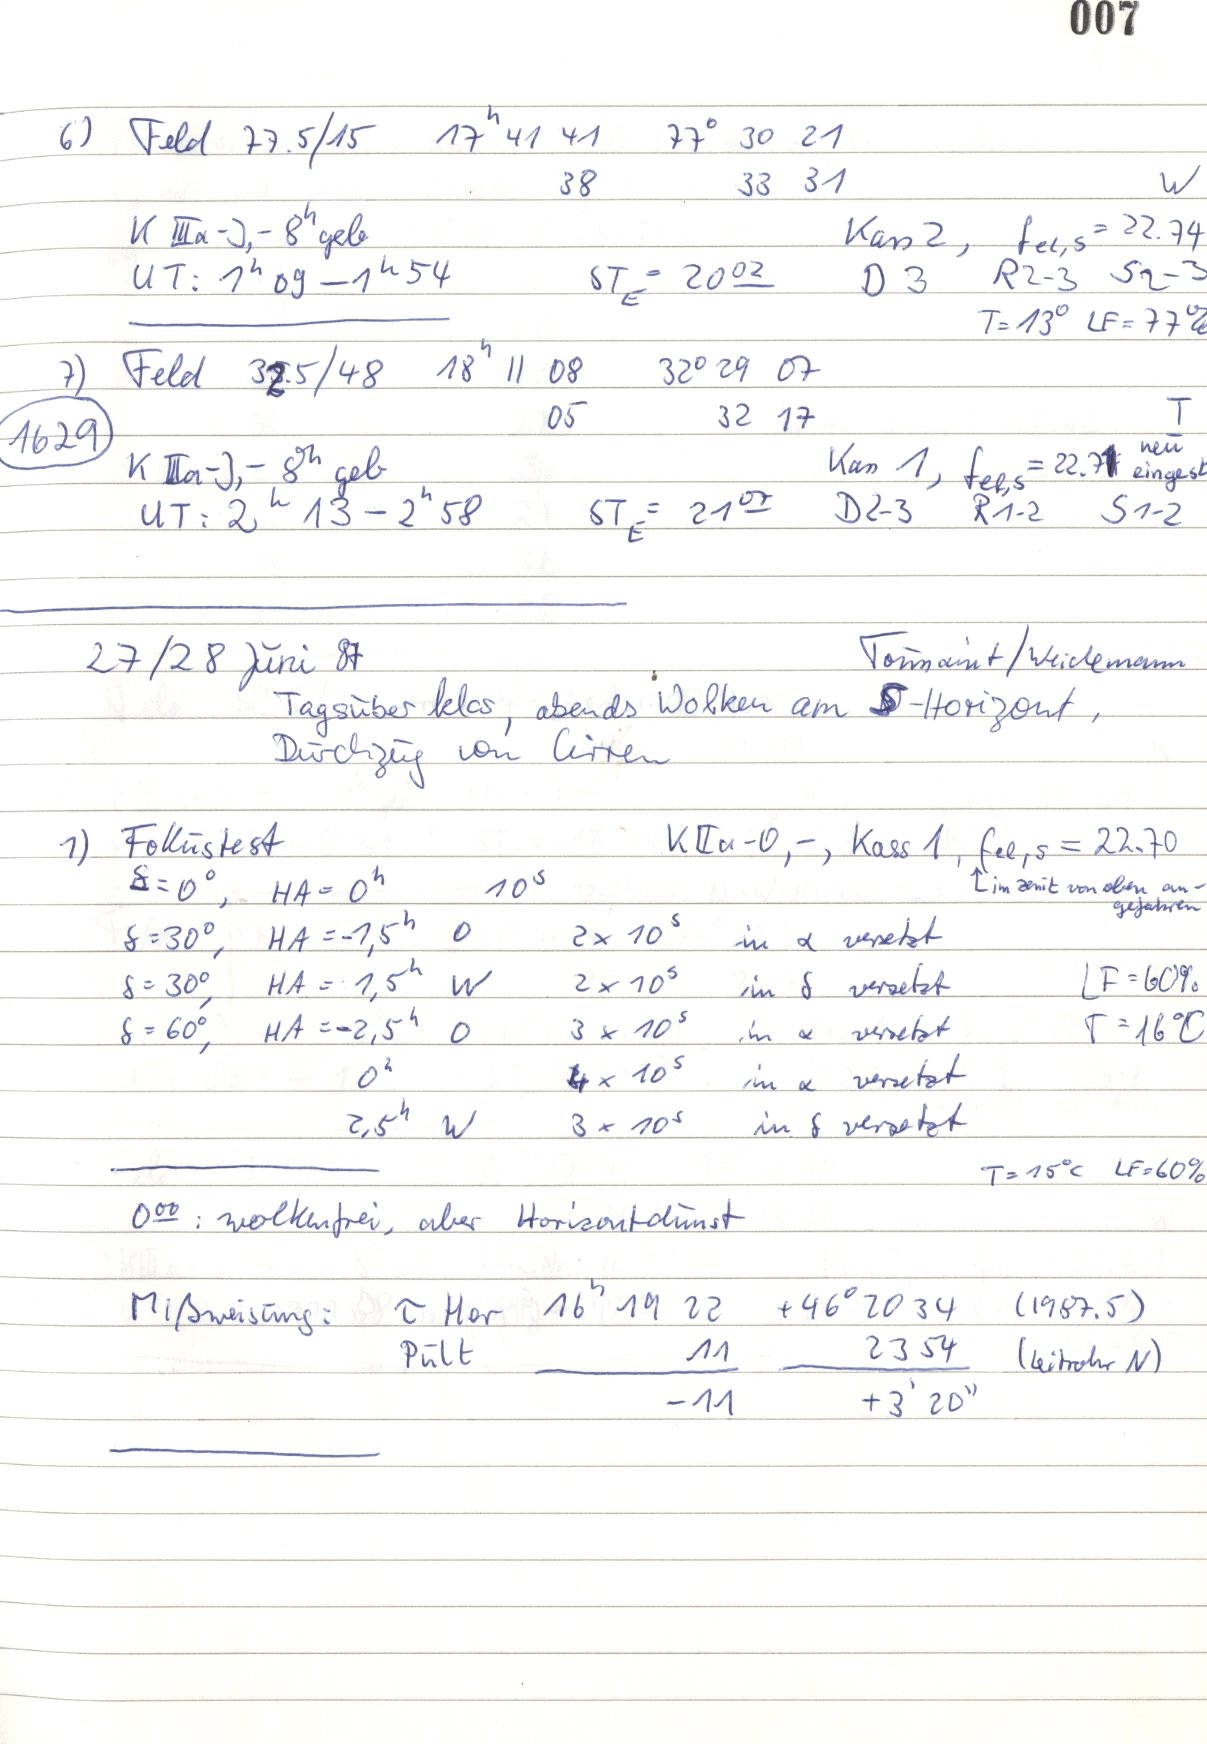 007
6) Feld 77.5/15 17h 41 41 77° 30 21
38 33 31 W
K IIIa-J,- 8h geb Kass 2, fel,s = 22.74
UT: 1h 09 – 1h 54 STE = 20 02 D 3 R2-3 S2-3
T=13° LF=77%
7) Feld 32.5/48 18h 11 08 32° 29 07
05 32 17 T
1629
K IIa-J,- 8h geb Kass 1, fel,s = 22.71 neu eingest
UT: 2h 13 – 2h 58 STE = 21 07 D2-3 R1-2 S1-2
27/28 Juni 87 Toussaint/Weidemann
Tagsüber klar, abends Wolken am S-Horizont,
Durchzug von Cirren
1) Fokustest K IIa-O,-, Kass 1, fel,s = 22.70
δ=0°, HA=0h 10s ↑ im Zenit von oben an-
gefahren
δ=30°, HA=-1,5h O 2 x 10s in α versetzt
δ=30°, HA= 1,5h W 2 x 10s in δ versetzt LF=60%
δ=60°, HA=-2,5h O 3 x 10s in α versetzt T=16°C
0h 4 x 10s in α versetzt
2,5h W 3 x 10s in δ versetzt
T=15°C LF=60%
0 00: wolkenfrei, aber Horizontdunst
Mißweisung: τ Her 16h 19 22 +46° 20 34 (1987.5)
Pult 11 23 54 (Leitrohr N)
-11 +3' 20"